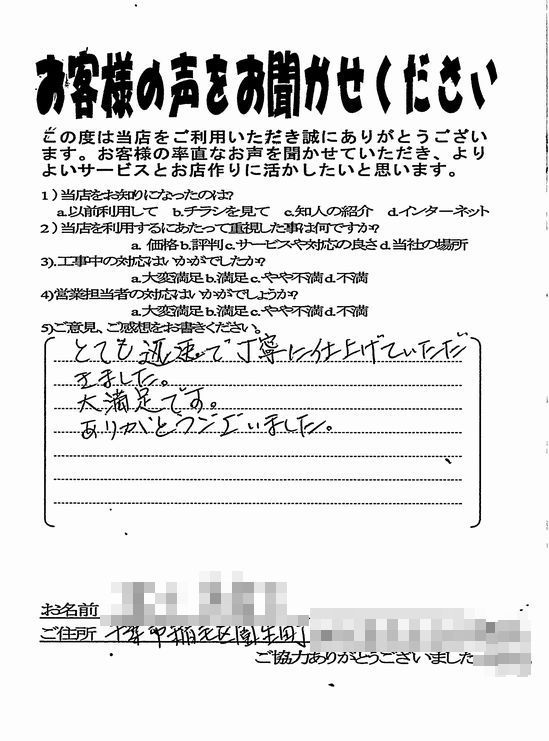 お客様の声をお聞かせください
この度は当店をご利用いただき誠にありがとうござい
ます。お客様の率直なお声を聞かせていただき、より
よいサービスとお店作りに活かしたいと思います。
1)当店をお知りになったのは?
a.以前利用して b.チラシを見て c.知人の紹介 d.インターネット
2)当店を利用するにあたって重視した事は何ですか?
a. 価格 b.評判 c.サービスや対応の良さ d.当社の場所
3).工事中の対応はいかがでしたか?
a.大変満足 b.満足 c.やや不満 d.不満
4)営業担当者の対応はいかがでしょうか?
a.大変満足 b.満足 c.やや不満 d.不満
5)ご意見、ご感想をお書きください。
とても迅速で丁寧に仕上げていただ
きました。
大満足です。
ありがとうございました。
お名前
ご住所 千葉市稲毛区園生町
ご協力ありがとうございました